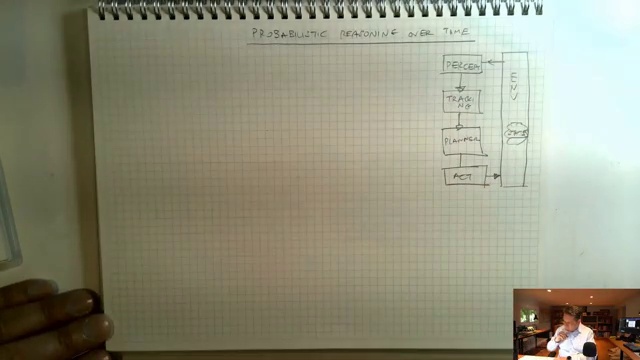 PROBABILISTIC REASONING OVER TIME
PERCEP
TRACKI
NG
PLANNER
ACT
ENV